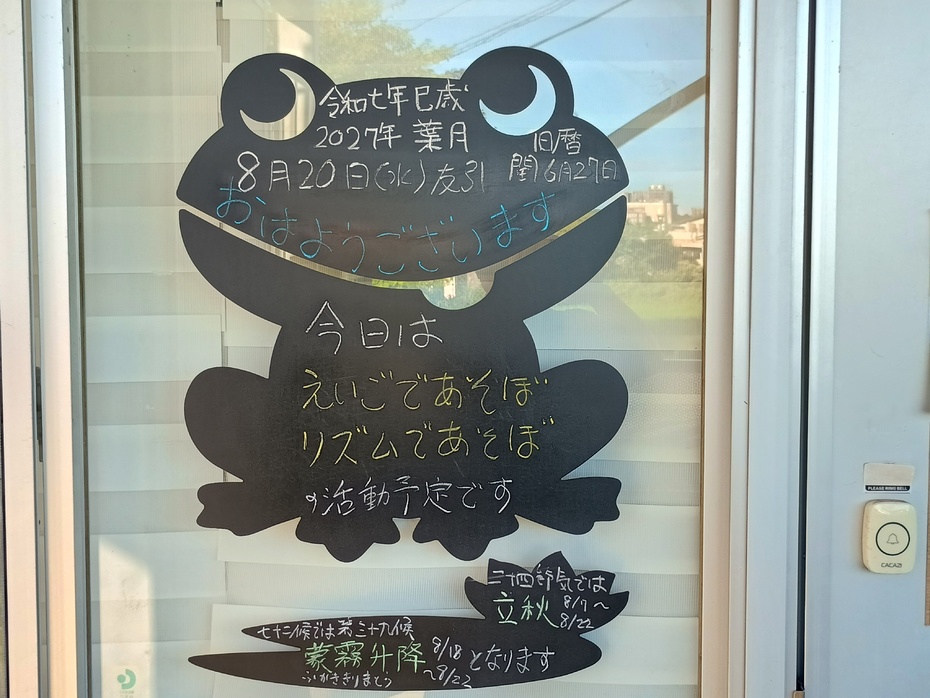 令和七年巳歳
2027年 葉月
8月20日(水)友引
旧暦
閏6月27日
おはようございます
今日は
えいごであそぼ
リズムであそぼ
の活動予定です
二十四節気では
立秋 8/7～
8/22
七十二候では第三十九候
蒙霧升降 8/18
～8/22 となります
ふかききりまとう
PLEASE RING BELL
CACAZI